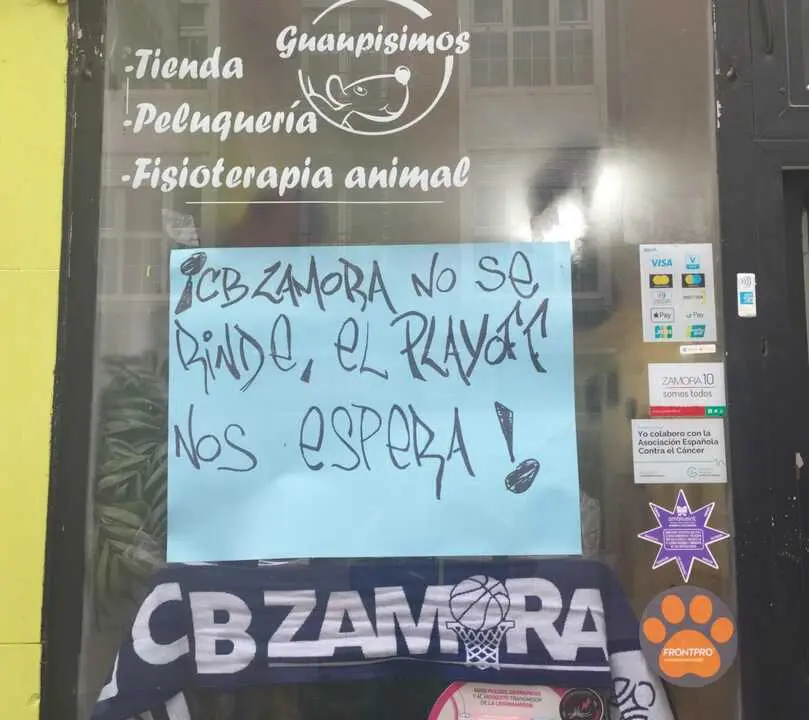 Guaupisimos
-Tienda
-Peluquería
-Fisioterapia animal
¡CB ZAMORA NO SE
RINDE, EL PLAYOFF
NOS ESPERA!
VISA
Pay
Pay
ZAMORA10
somos todos
Yo colaboro con la
Asociación Española
Contra el Cáncer
FRONTPRO
CB ZAMORA